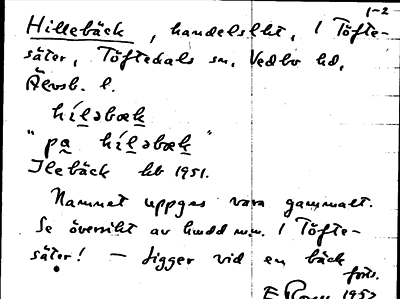 1-2
Hillebäck, handelslht, i Töfte-
säter, Töftedals sn, Vedbo hd,
Älvsb. l.
híləbæk
"pa híləbæk"
Ilebäck hb 1951.
Namnet uppges vara gammalt.
Se översikt av hmdd m.m. i Töfte-
säter! — Ligger vid en bäck
forts.
1952